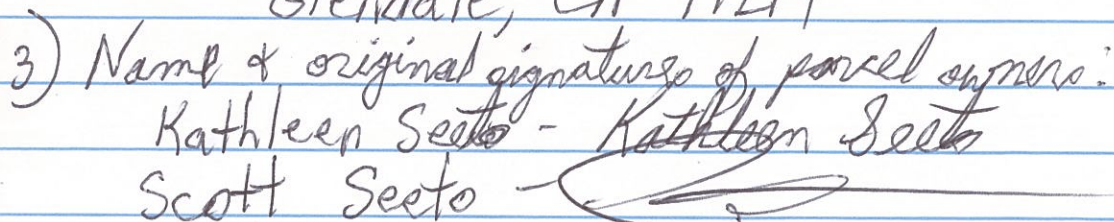 Glendale, CA
3) Name & original signatures of parcel owners:
Kathleen Seeto - Kathleen Seeto
Scott Seeto -